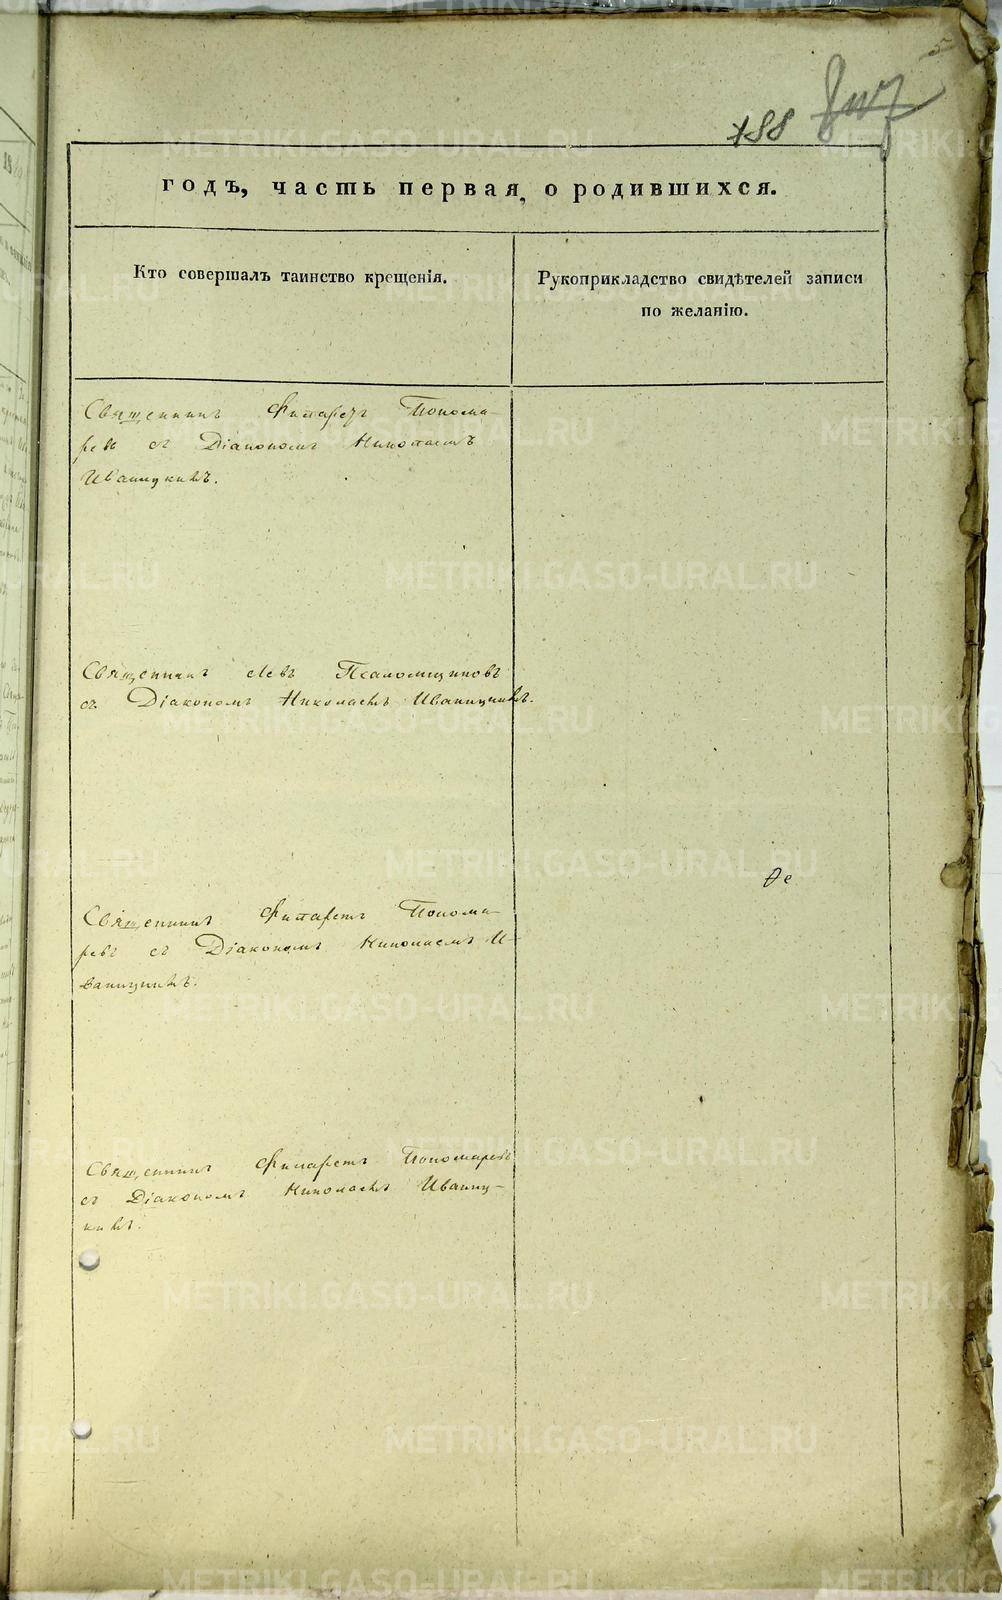 5
188
годъ, часть первая, о родившихся.
Кто совершалъ таинство крещенія.
Рукоприкладство свидѣтелей записи
по желанію.
Священникъ Филаретъ Понома-
ревъ съ Діакономъ Николаемъ
Иваницкимъ.
Священникъ Левъ Псаломщиковъ
съ Діакономъ Николаемъ Иваницкимъ.
Священникъ Филаретъ Понома-
ревъ съ Діакономъ Николаемъ И-
ваницкимъ.
Священникъ Филаретъ Пономаревъ
съ Діакономъ Николаемъ Иваниц-
кимъ.
METRIKI.GASO-URAL.RU